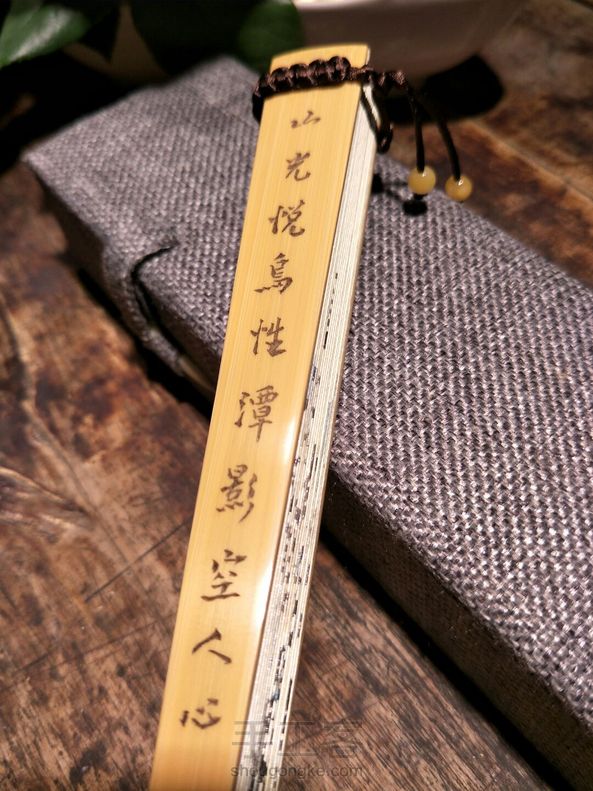 山光悦鳥性潭影空人心
手工客
shougongke.com